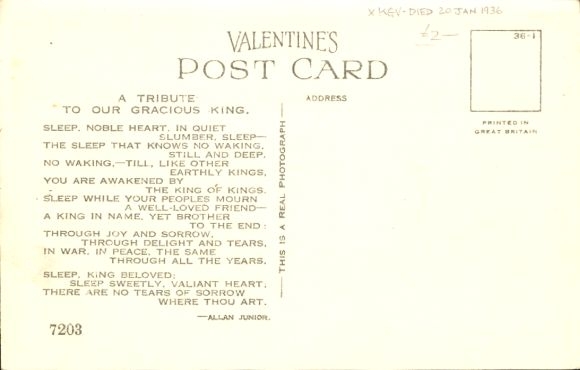 x KGV - DIED 20 JAN 1936
£2-
VALENTINES
POST CARD
36-1
PRINTED IN
GREAT BRITAIN
ADDRESS
A TRIBUTE
TO OUR GRACIOUS KING.
SLEEP, NOBLE HEART, IN QUIET
SLUMBER, SLEEP—
THE SLEEP THAT KNOWS NO WAKING,
STILL AND DEEP,
NO WAKING,—TILL, LIKE OTHER
EARTHLY KINGS,
YOU ARE AWAKENED BY
THE KING OF KINGS.
SLEEP WHILE YOUR PEOPLES MOURN
A WELL-LOVED FRIEND—
A KING IN NAME, YET BROTHER
TO THE END:
THROUGH JOY AND SORROW,
THROUGH DELIGHT AND TEARS,
IN WAR, IN PEACE, THE SAME
THROUGH ALL THE YEARS.
SLEEP, KING BELOVED;
SLEEP SWEETLY, VALIANT HEART;
THERE ARE NO TEARS OF SORROW
WHERE THOU ART.
—ALLAN JUNIOR.
7203
— THIS IS A REAL PHOTOGRAPH —